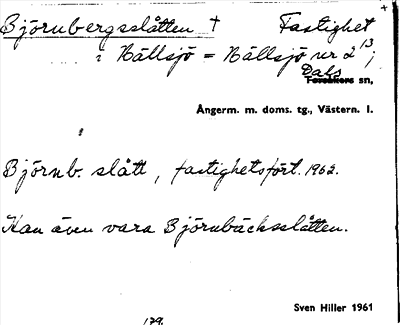 +
Björnbergsslåtten † Fastighet
i Hällsjö = Hällsjö nr 2¹³;
Dals
Forsåkers sn,
Ångerm. m. doms. tg., Västern. l.
Björnb. slått, fastighetsfört. 1962.
Kan även vara Björnbäcksslåtten.
Sven Hiller 1961
179.